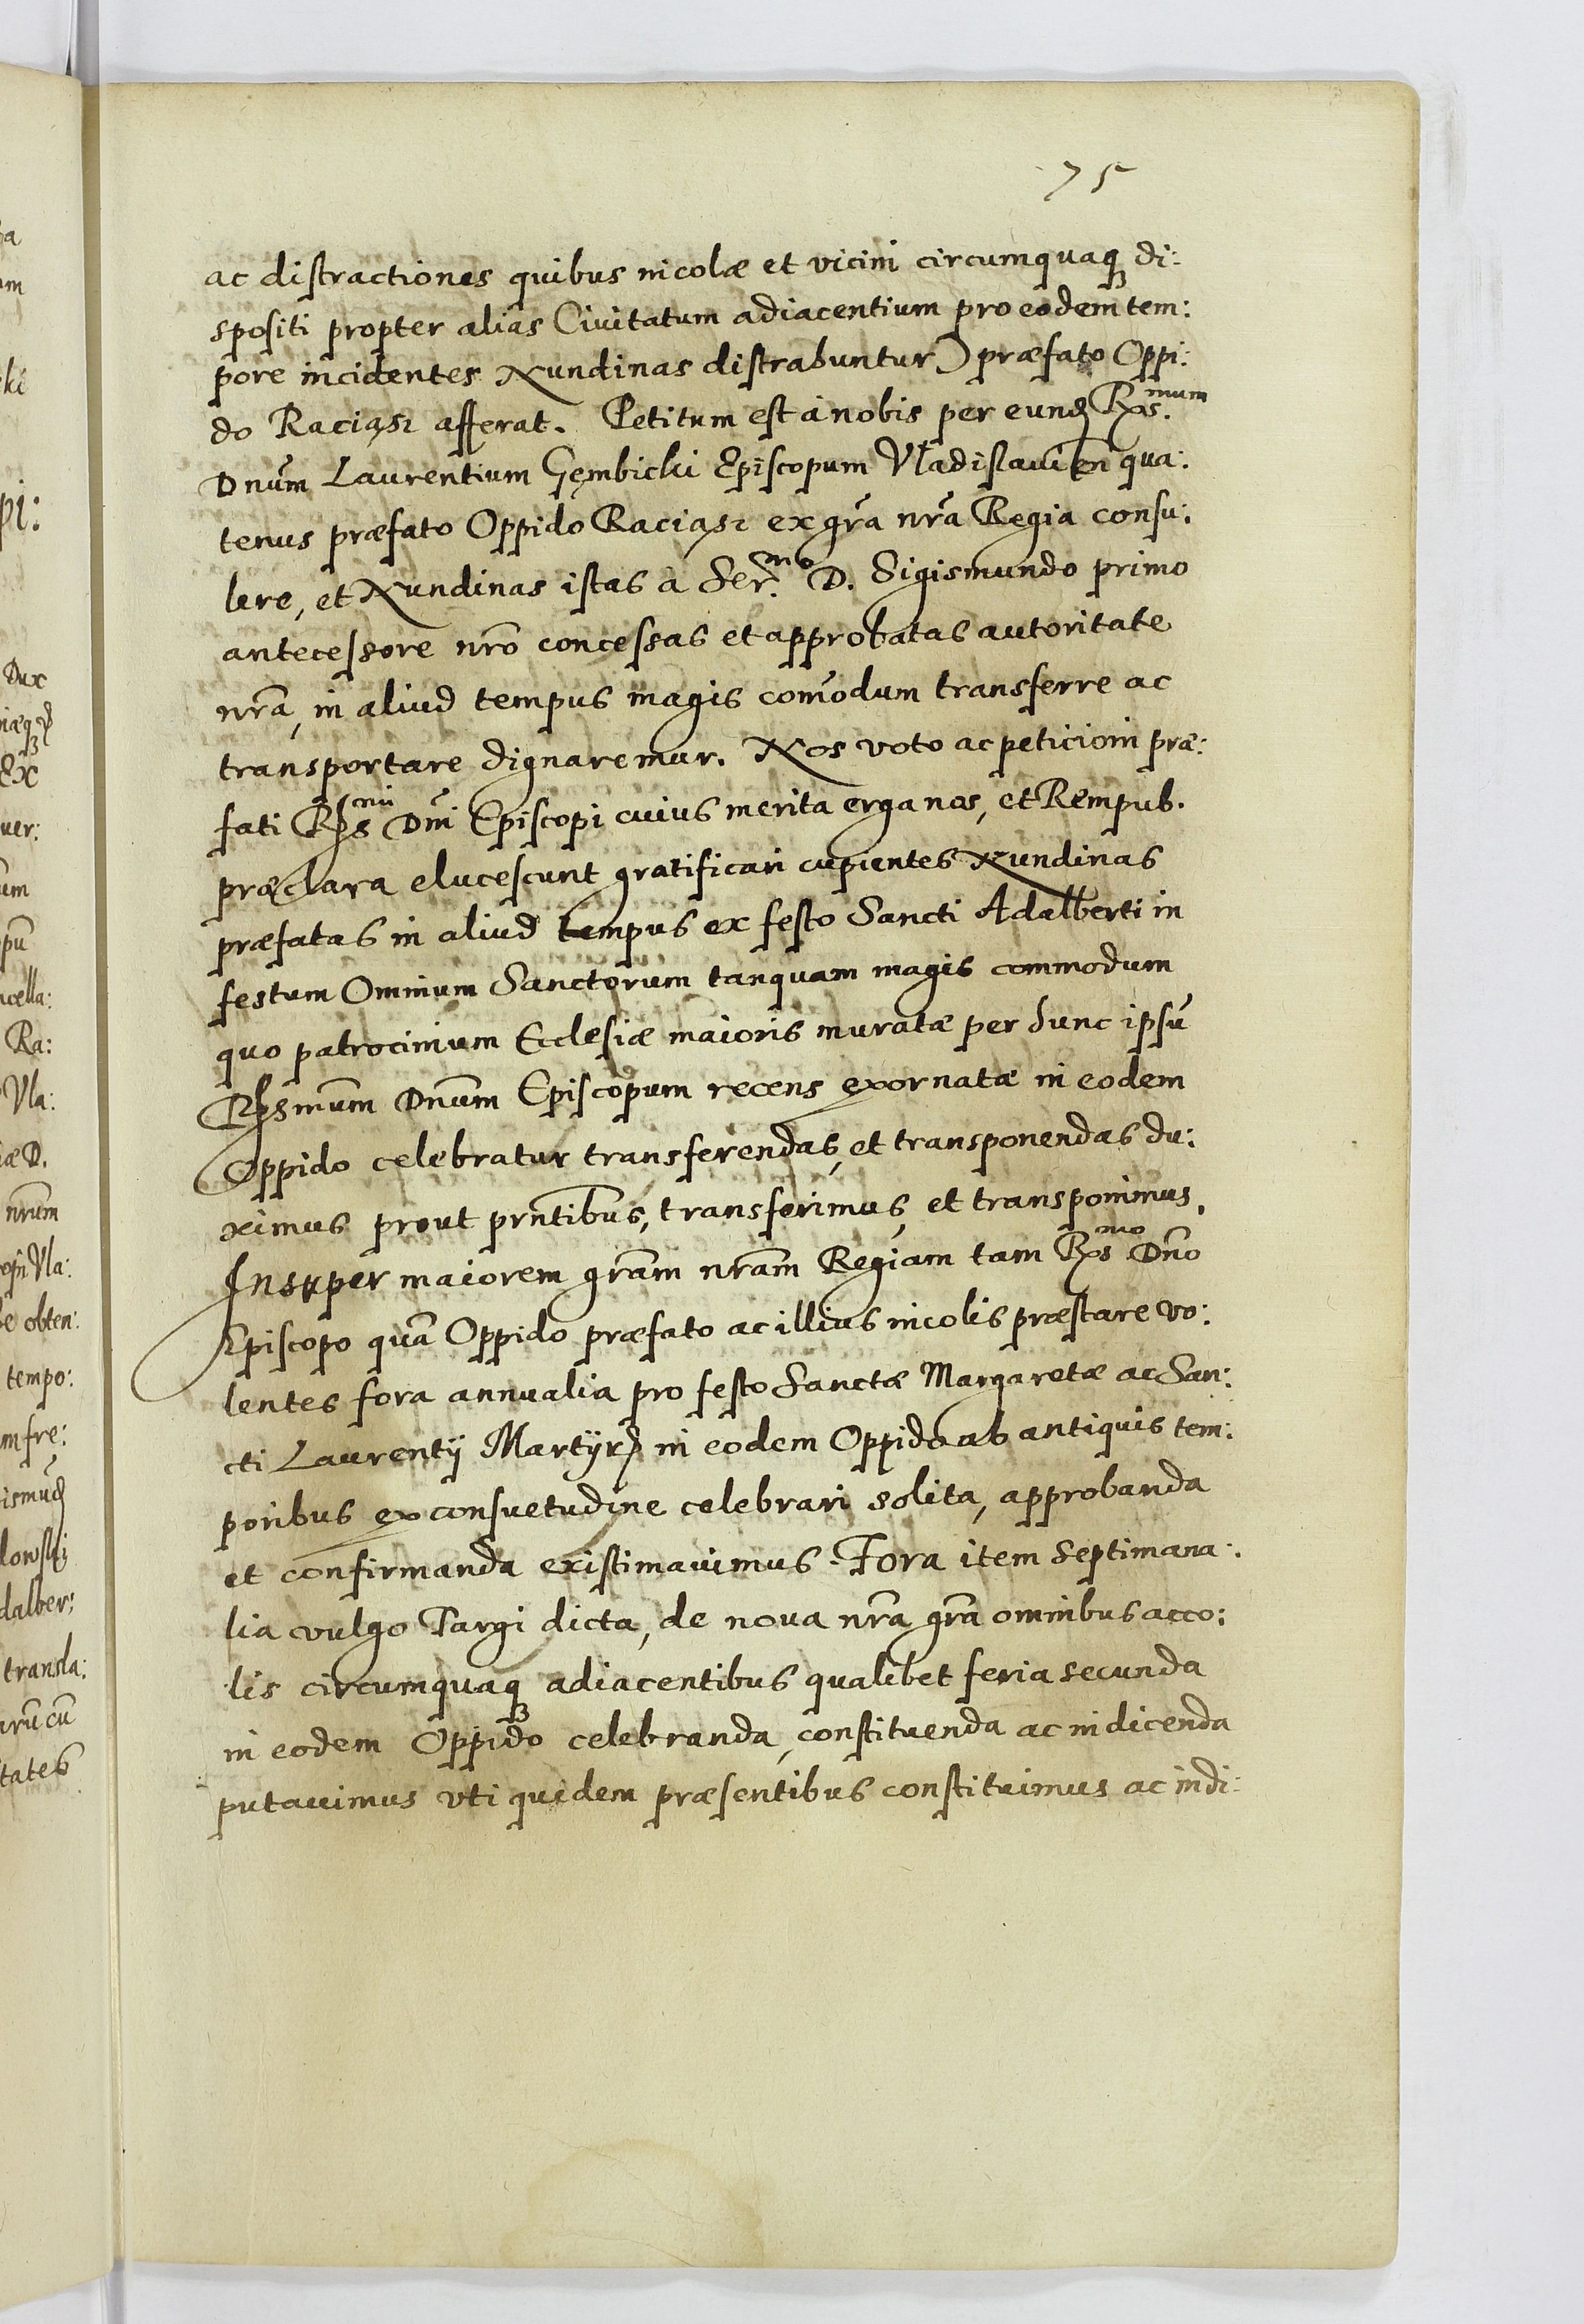 75
ac distractiones quibus incolæ et vicini circumquaqꝫ di:
spositi propter alias Ciuitatum adiacentium pro eodem tem:
pore incidentes Nundinas distrahuntur) præfato Oppi:
do Raciąsz afferat. Petitum est à nobis per eund Rṽs.mum
Dnũm Laurentium Gęmbicki Episcopum Vladislauieñ qua:
tenus præfato Oppido Raciąsz ex grã nrã Regia consu:
lere, et Nundinas istas à Ser.mo D. Sigismundo primo
antecessore nrõ concessas et approbatas autoritate
nrã, in aliud tempus magis com̃odum transferre ac
transportare dignaremur. Nos voto ac peticioni præ:
fati Rṽsmi Dnĩ Episcopi cuius merita erga nos, et Rempub.
præclara elucescunt gratificari cupientes Nundinas
præfatas in aliud tempus ex festo Sancti Adalberti in
festum Omnium Sanctorum tanquam magis commodum
quo patrocinium Ecclesiæ maioris muratæ per hunc ipsũ
Rṽsmũm Dnũm Episcopum recens exornatæ in eodem
Oppido celebratur transferendas, et transponendas du:
ximus prout prñtibus, transferimus, et transponimus.
Insuper maiorem grãm nrãm Regiam tam Rṽsmo Dnõ
Episcopo quã Oppido præfato ac illius incolis præstare vo:
lentes fora annualia pro festo Sanctæ Margaretæ ac San:
cti Laurentÿ Martÿrꝭ in eodem Oppido ab antiquis tem:
poribus ex consuetudine celebrari solita, approbanda
et confirmanda existimauimus. Fora item Septimana:
lia vulgo Targi dicta, de noua nrã grã omnibus acco:
lis circumquaqꝫ adiacentibus qualibet feria secunda
in eodem Oppido celebranda, constituenda ac indicenda
putauimus vti quidem præsentibus constituimus ac indi: